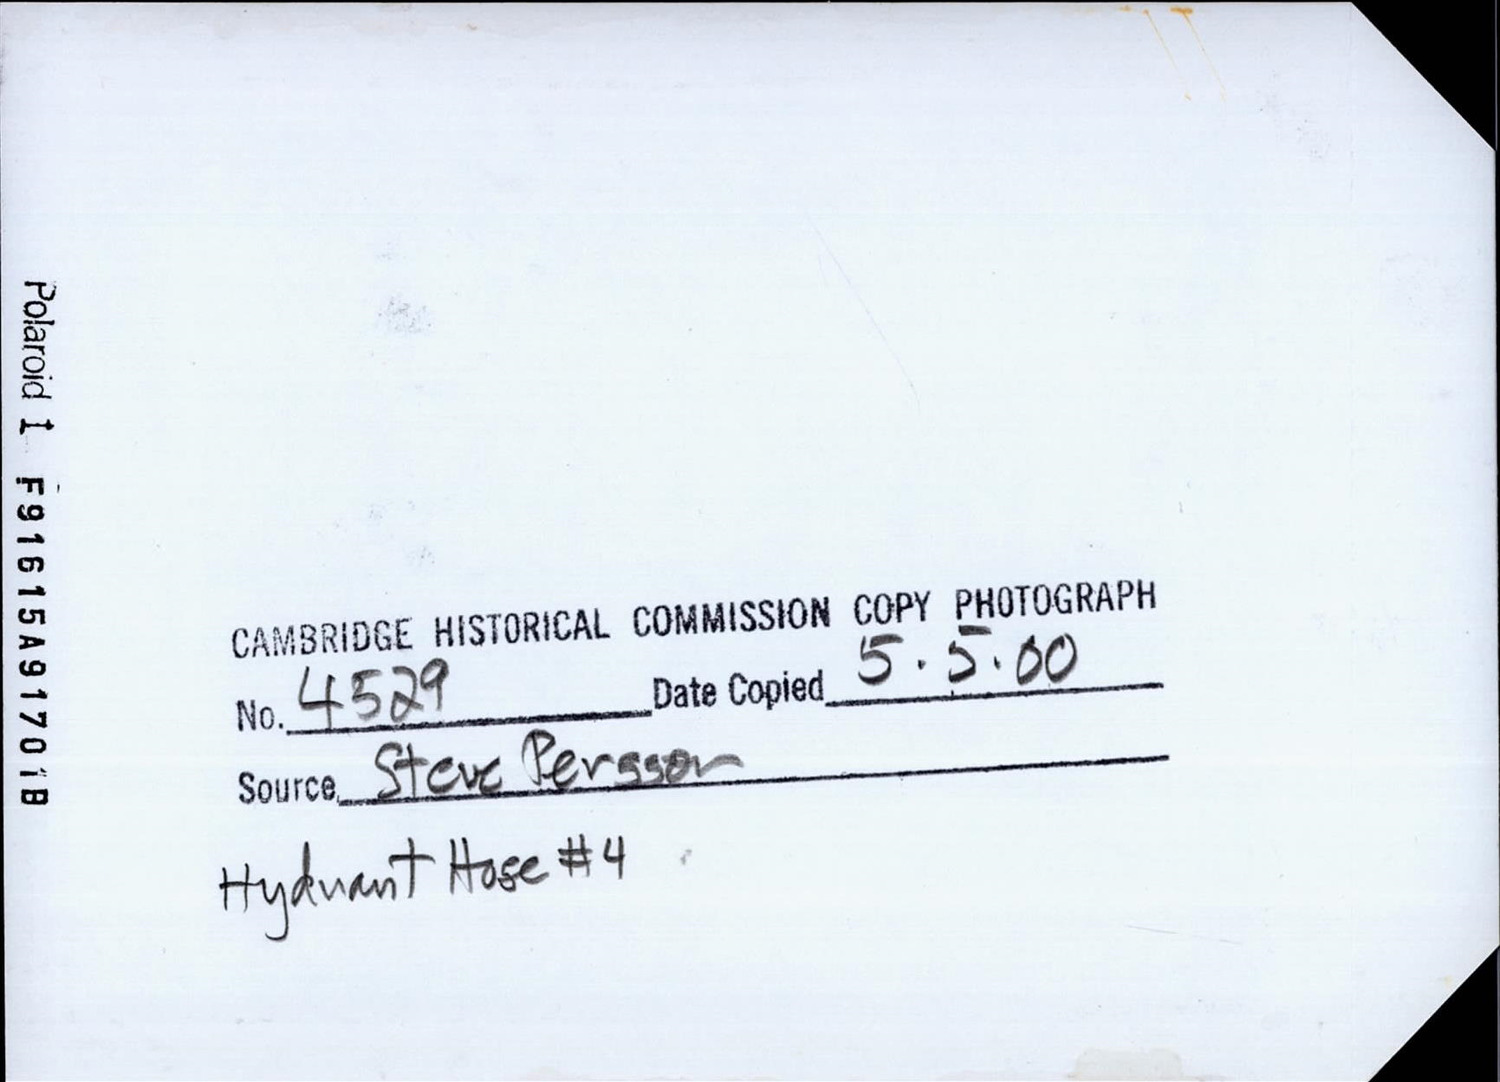 Polaroid 1 F91615A91701B
CAMBRIDGE HISTORICAL COMMISSION COPY PHOTOGRAPH
No. 4529 Date Copied 5.5.00
Source Steve Persson
Hydrant Hose #4